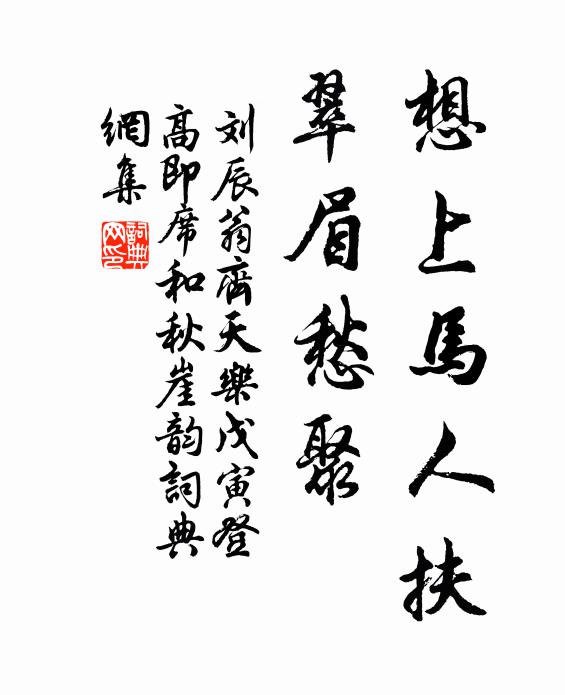 想上馬人扶
翠眉愁聚
刘辰翁齊天樂戊寅登
高即席和秋崖韵詞典
網集
詞典
网印